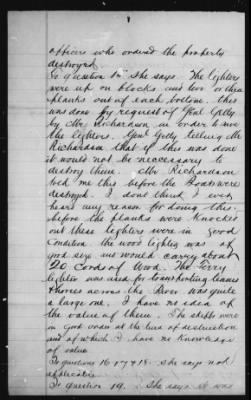 officers who ordered the property
destroyed.
To question 15" She says. The lighters
were up on blocks and two or three
planks out of each bottom. this
was done by request of Genl Getty
by Mr. Richardson, in order to save
the lighters. Genl Getty telling Mr
Richardson that if this was done
it would not be neccessary to
destroy them. Mr Richardson
told me this before the boats were
destroyed. I dont think I ever
heard any reason for doing this.
before the planks were knocked
out these lighters were in good
condition. the wood lighter was of
good size and would carry about
20 Cords of Wood. The Ferry
lighter was used for transporting teams
& horses across the River was quite
a large one. I have no idea of
the value of them. The skiffs were
in good order at the time of destruction
and of which I have no knowledge
of value.
To questions 16 & 17 & 18. she says not
applicable.
To question 19. She says it was